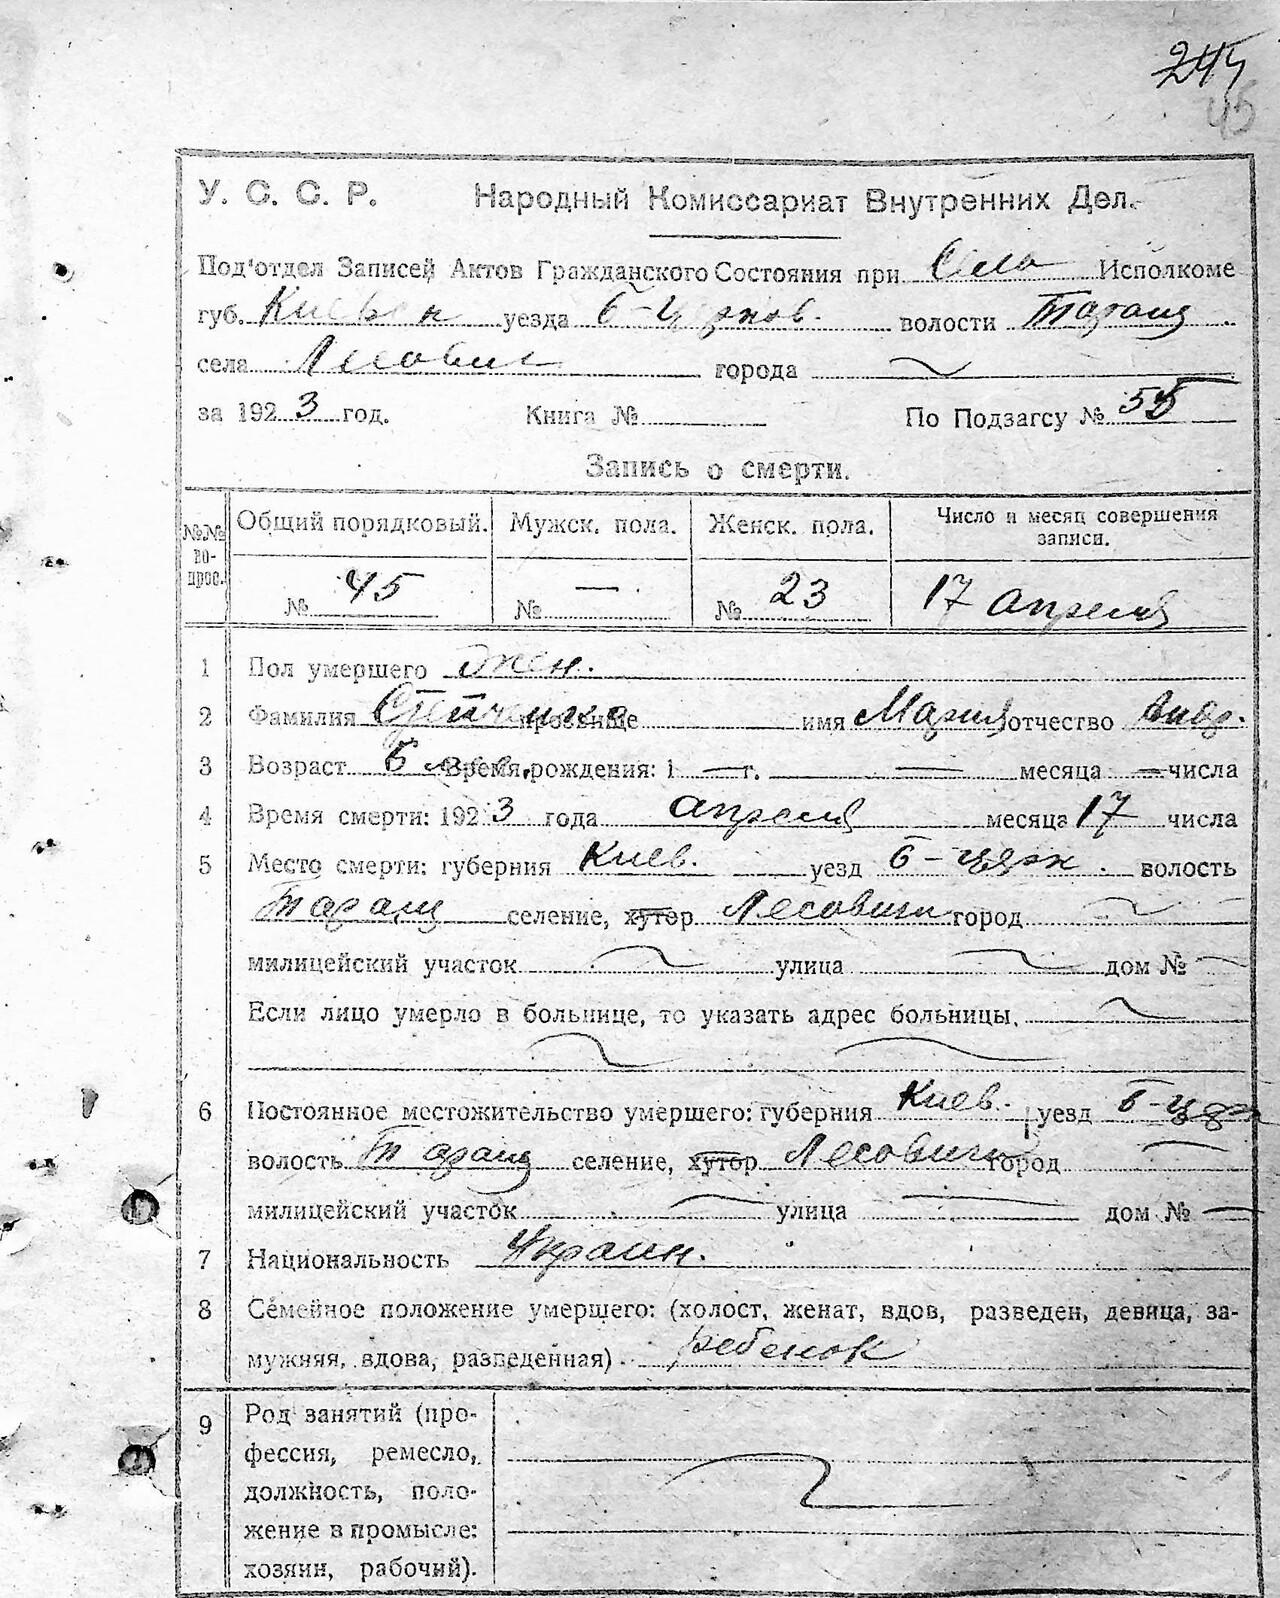 245
45
У. С. С. Р. Народный Комиссариат Внутренних Дел.
Под'отдел Записей Актов Гражданского Состояния при Село Исполкоме
губ. Киевск уезда б-церков. волости Таращ.
села Лесович города
за 1923 год. Книга № По Подзагсу № 55
Запись о смерти.
№№ вопрос. Общий порядковый. Мужск. пола. Женск. пола. Число и месяц совершения записи.
№ 45 № — № 23 17 апреля
1 Пол умершего жен.
2 Фамилия прозвище имя Мария отчество Андр.
3 Возраст 6 Время рождения: 1 — г. — месяца — числа
4 Время смерти: 1923 года апреля месяца 17 числа
5 Место смерти: губерния Киев. уезд б-церк. волость
Таращ селение, хутор Лесовичи город
милицейский участок улица дом №
Если лицо умерло в больнице, то указать адрес больницы.
6 Постоянное местожительство умершего: губерния Киев. уезд б-церк
волость Таращ селение, хутор Лесовичи город
милицейский участок улица дом № —
7 Национальность Украин.
8 Семейное положение умершего: (холост, женат, вдов, разведен, девица, за-
мужняя, вдова, разведенная) ребенок
9 Род занятий (про-
фессия, ремесло,
должность, поло-
жение в промысле:
хозяин, рабочий).